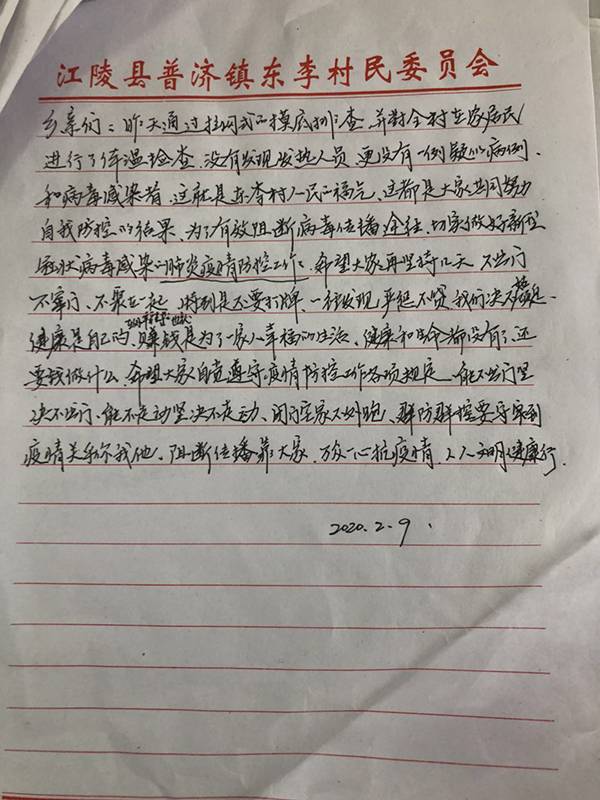 江陵县普济镇东李村民委员会
乡亲们：昨天通过拉网式的摸底排查、并对全村在家居民
进行了体温检查、没有发现发热人员、更没有一例疑似病例、
和病毒感染者、这就是东李村人民的福气、这都是大家共同努力
自我防控的结果、为了有效阻断病毒传播途径、切实做好新型
冠状病毒感染的肺炎疫情防控工作、希望大家再坚持几天、不出门
不窜门、不聚在一起、特别是不要打牌、一经发现、严惩不贷、我们决不
健康是自己的、赚钱是为了一家人幸福的生活、健康和生命都没有了、还
要钱做什么、希望大家自觉遵守疫情防控工作各项规定、能不出门坚
决不出门、能不走动坚决不走动、闭门在家不外跑、群防群控要守牢
疫情关系你我他、阻断传播靠大家、万众一心抗疫情、人人文明健康行.
2020.2.9.